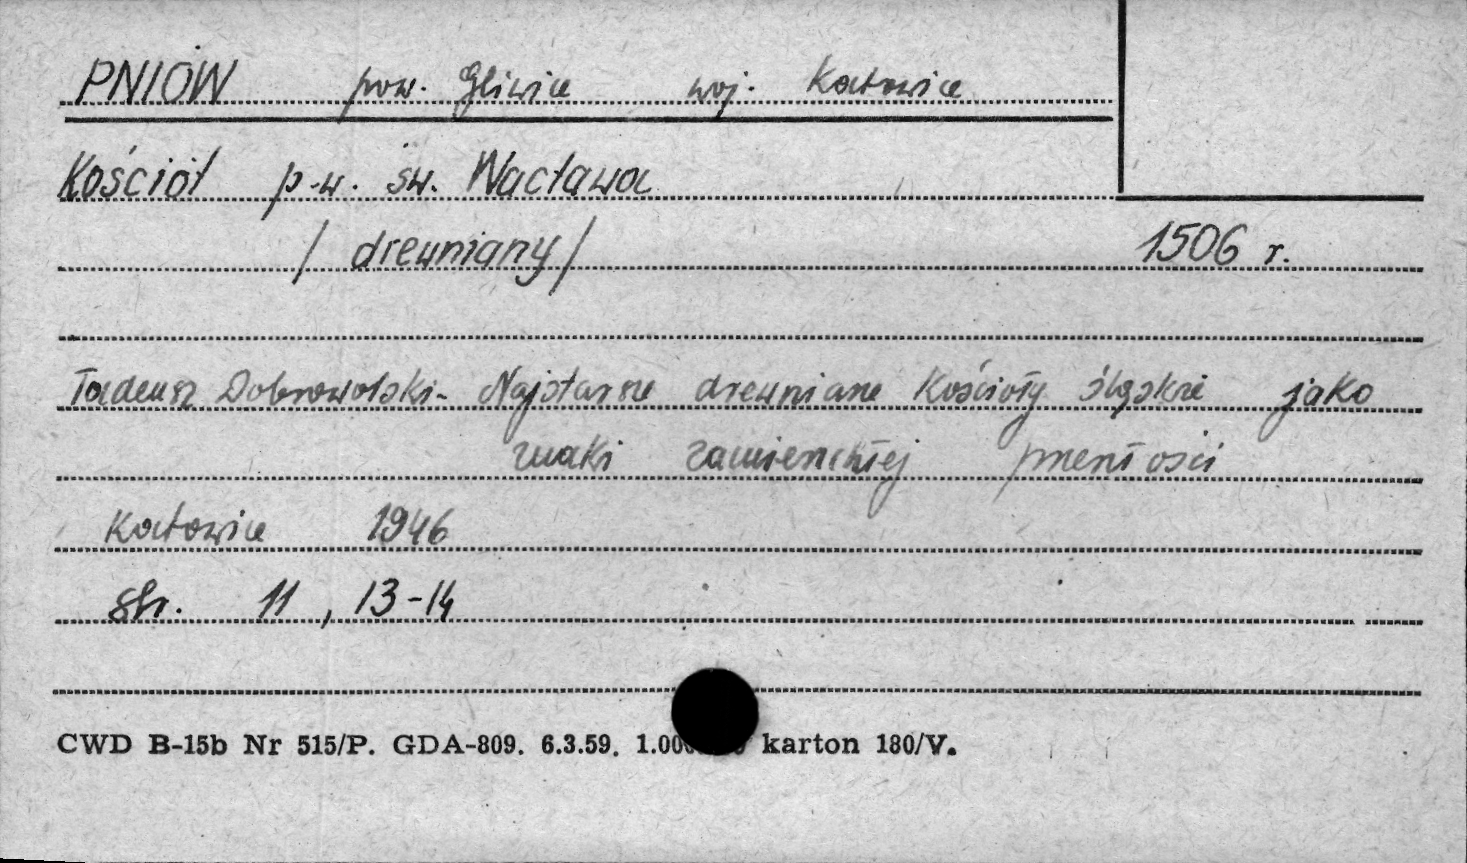 PNIÓW pow. Gliwice woj. Katowice
Kościół p.w. św. Wacława
/ drewniany / 1506 r.
Tadeusz Dobrowolski - Najstarsze drewniane Kościoły śląskie jako
znaki zamierzchłej przeszłości
Katowice 1946
str. 11, 13-14
CWD B-15b Nr 515/P. GDA-809. 6.3.59. karton 180/V.